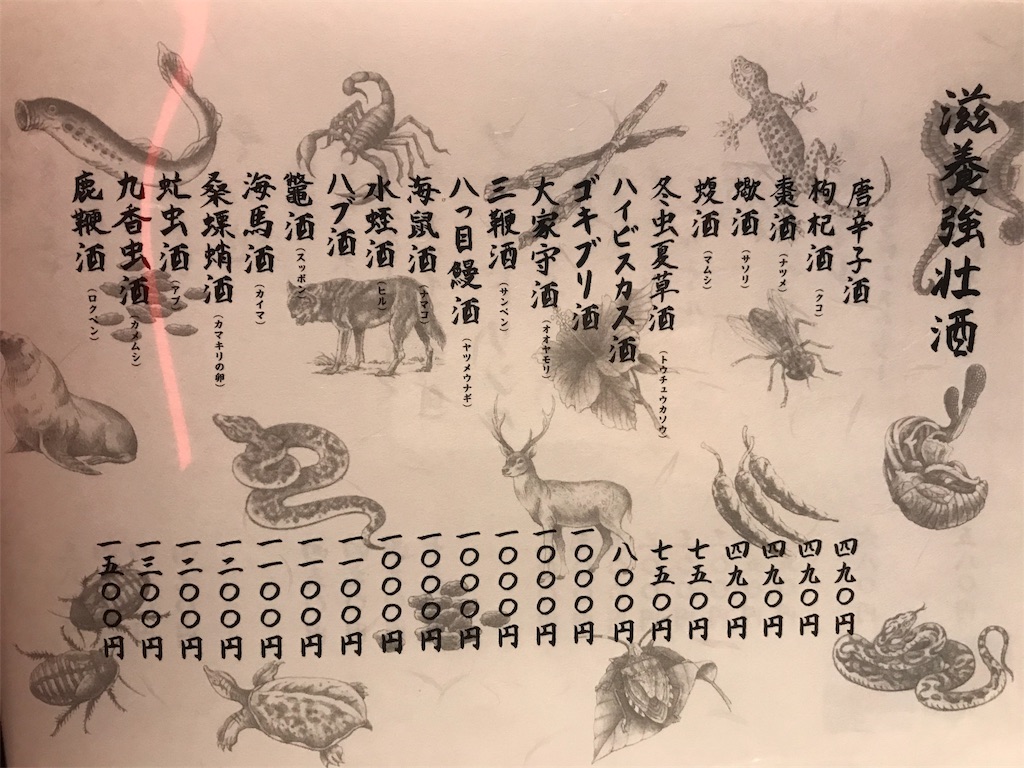 滋養強壮酒
唐辛子酒
枸杞酒（クコ）
棗酒（ナツメ）
蠍酒（サソリ）
蝮酒（マムシ）
冬虫夏草酒（トウチュウカソウ）
ハイビスカス酒
ゴキブリ酒
大家守酒（オオヤモリ）
三鞭酒（サンペン）
八っ目鰻酒（ヤツメウナギ）
海鼠酒（ナマコ）
水蛭酒（ヒル）
ハブ酒
鼈酒（スッポン）
海馬酒（カイマ）
桑螵蛸酒（カマキリの卵）
虻虫酒（アブ）
九香虫酒（カメムシ）
鹿鞭酒（ロクペン）
四九〇円
四九〇円
四九〇円
四九〇円
七五〇円
七五〇円
八〇〇円
一〇〇〇円
一〇〇〇円
一〇〇〇円
一〇〇〇円
一〇〇〇円
一〇〇〇円
一一〇〇円
一一〇〇円
一一〇〇円
一二〇〇円
一二〇〇円
一三〇〇円
一五〇〇円